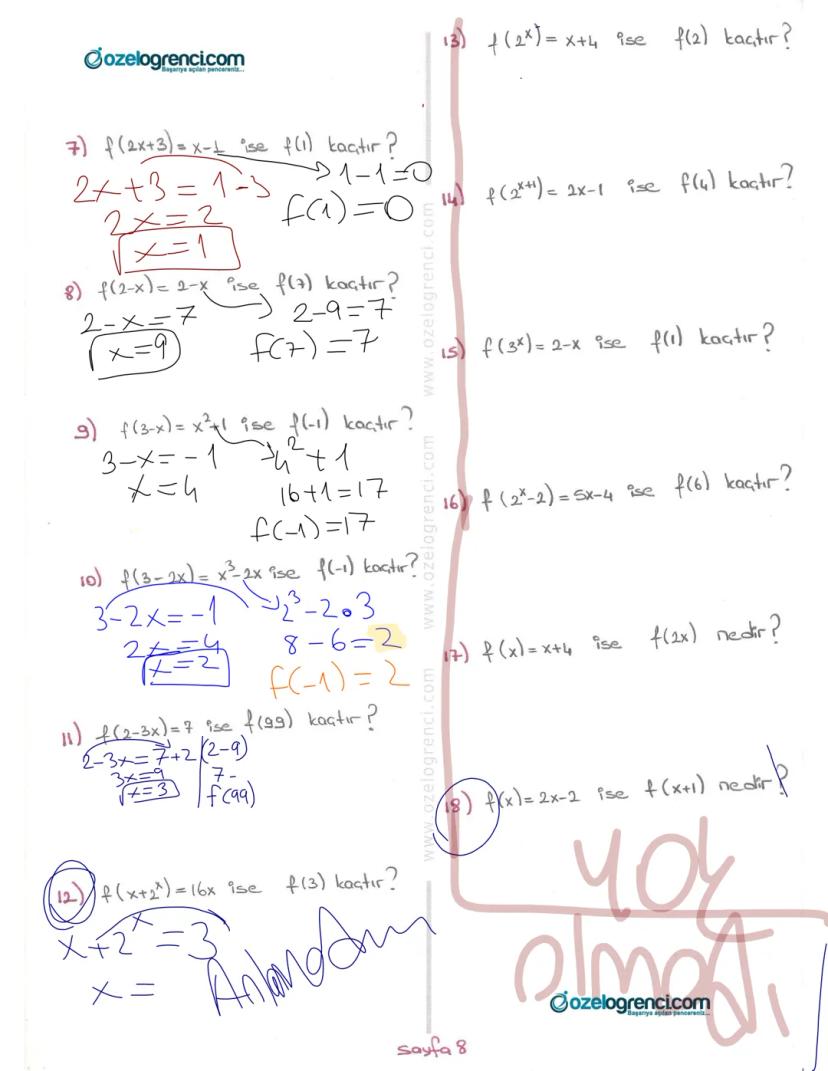 ozelogrenci.com
Başarıya açılan pencereniz...
7) f(2x+3) = x-1 ise f(1) kaçtır?
1-1=0
2x+3=1-3
f(1)=0
2x=2
x=1
8) f(2-x) = 2-x ise f(7) kaçtır?
2-x=7
2-9=7
x=9
f(7)=7
9) f(3-x) = x²+1 ise f(-1) kaçtır?
3-x=-1
4²+1
x=4
16+1=17
f(-1)=17
10) f(3-2x) = x³-2x ise f(-1) kaçtır?
3-2x=-1
2³-2•3
2x=4
8-6=2
x=2
f(-1)=2
11) f(2-3x)=7 ise f(99) kaçtır?
2-3x=7+2
(2-9)
3x=9
7-
x=3
f(99)
12) f(x+2ˣ)=16x ise f(3) kaçtır?
x+2ˣ=3
x=
Anlamadım
13) f(2ˣ) = x+4 ise f(2) kaçtır?
14) f(2ˣ⁺¹) = 2x-1 ise f(4) kaçtır?
15) f(3ˣ) = 2-x ise f(1) kaçtır?
16) f(2ˣ-2) = 5x-4 ise f(6) kaçtır?
17) f(x) = x+4 ise f(2x) nedir?
18) f(x) = 2x-2 ise f(x+1) nedir?
yok
olmadı
ozelogrenci.com
Başarıya açılan pencereniz...
sayfa 8
www.ozelogrenci.com www.ozelogrenci.com www.ozelogrenci.com